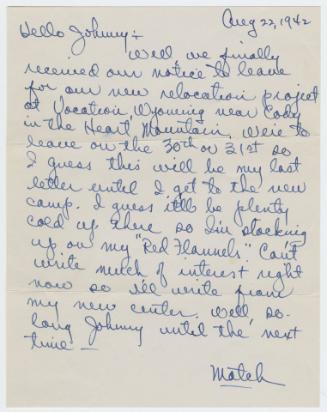 Aug 22, 1942
Hello Johnny:-
Well, we finally
received our notice to leave
for our new relocation project
at Vocation, Wyoming near Cody
in the Heart Mountain. We're to
leave on the 30th or 31st so
I guess this will be my last
letter until I get to the new
camp. I guess it'll be plenty
cold up there so I'm stocking
up on my "Red Flannels". Can't
write much of interest right
now so I'll write from
my new center. Well, so-
long Johnny until the next
time —
Match